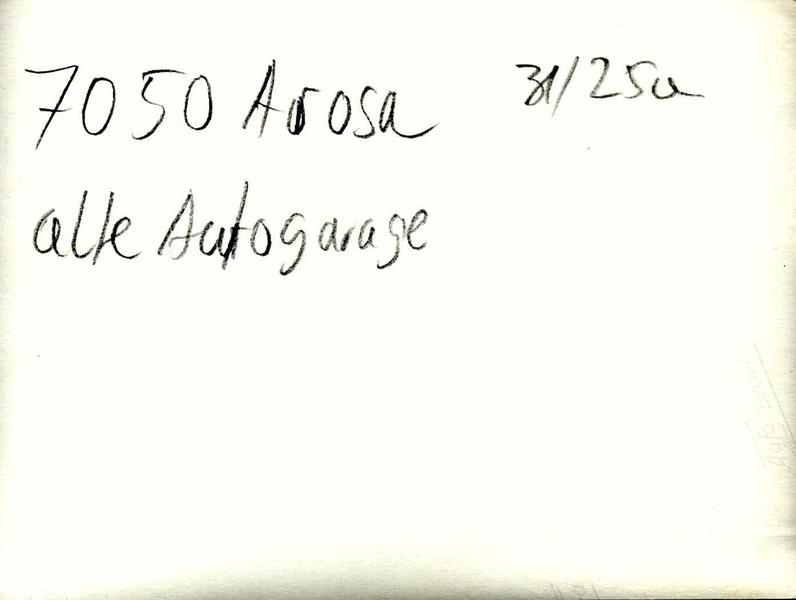 7050 Arosa 31/25a
alte Autogarage